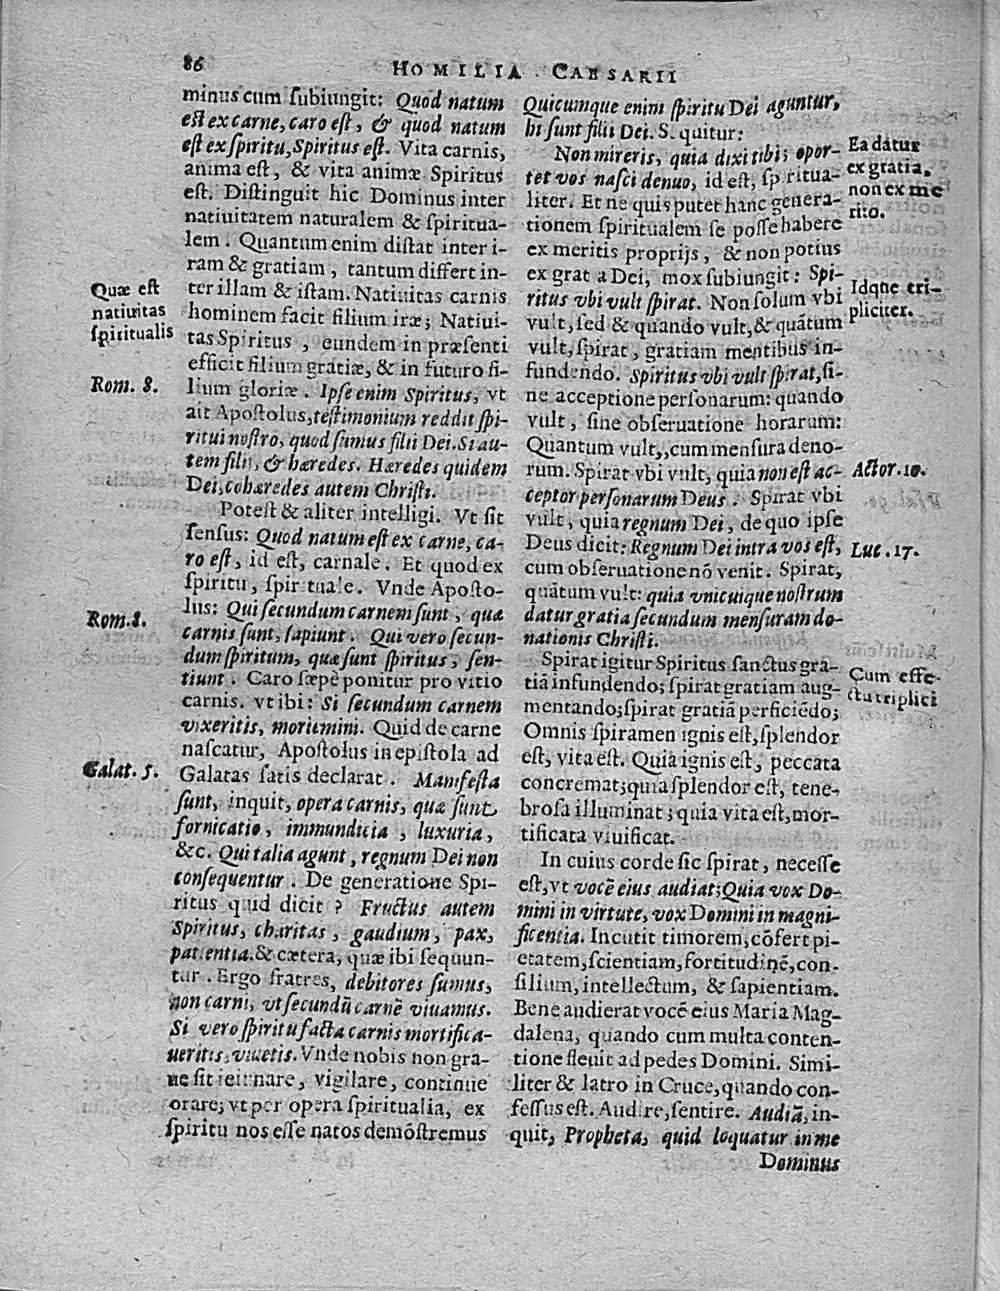 86
HOMILIA CAESARII
minus cum ſubiungit: Quod natum
eſt ex carne, caro eſt, & quod natum
eſt ex ſpiritu, Spiritus eſt. Vita carnis,
anima eſt, & vita animæ Spiritus
eſt. Diſtinguit hic Dominus inter
natiuitatem naturalem & ſpiritua-
lem. Quantum enim diſtat inter i-
ram & gratiam, tantum differt in-
ter illam & iſtam. Natiuitas carnis
hominem facit filium iræ; Natiui-
tas Spiritus, eundem in præſenti
efficit filium gratiæ, & in futuro fi-
lium gloriæ. Ipſe enim Spiritus, vt
ait Apoſtolus, teſtimonium reddit ſpi-
ritui noſtro, quod ſumus filii Dei. Si au-
tem filii, & hæredes. Hæredes quidem
Dei, cohæredes autem Chriſti.
Poteſt & aliter intelligi. Vt ſit
ſenſus: Quod natum eſt ex carne, ca-
ro eſt, id eſt, carnale. Et quod ex
ſpiritu, ſpirituale. Vnde Apoſto-
lus: Qui ſecundum carnem ſunt, quæ
carnis ſunt, ſapiunt. Qui vero ſecun-
dum ſpiritum, quæ ſunt ſpiritus, ſen-
tiunt. Caro ſæpè ponitur pro vitio
carnis. vt ibi: Si ſecundum carnem
vixeritis, moriemini. Quid de carne
naſcatur, Apoſtolus in epiſtola ad
Galatas ſatis declarat. Manifeſta
ſunt, inquit, opera carnis, quæ ſunt
fornicatio, immundicia, luxuria,
&c. Qui talia agunt, regnum Dei non
conſequentur. De generatione Spi-
ritus quid dicit? Fructus autem
Spiritus, charitas, gaudium, pax,
patientia. & cætera, quæ ibi ſequun-
tur. Ergo fratres, debitores ſumus,
non carni, vt ſecundū carnē viuamus.
Si vero ſpiritu facta carnis mortifica-
ueritis, viuetis. Vnde nobis non gra-
ue ſit ieiunare, vigilare, continue
orare; vt per opera ſpiritualia, ex
ſpiritu nos eſſe natos demōſtremus
Quæ eſt
natiuitas
ſpiritualis
Rom. 8.
Rom. 8.
Galat. 5.
Quicumque enim ſpiritu Dei aguntur,
hi ſunt filii Dei. S. quitur:
Non mireris, quia dixi tibi; opor-
tet vos naſci denuo, id eſt, ſpiritua-
liter. Et ne quis putet hanc genera-
tionem ſpiritualem ſe poſſe habere
ex meritis proprijs, & non potius
ex gratia Dei, mox ſubiungit: Spi-
ritus vbi vult ſpirat. Non ſolum vbi
vult, ſed & quando vult, & quātum
vult, ſpirat, gratiam mentibus in-
fundendo. Spiritus vbi vult ſpirat, ſi-
ne acceptione perſonarum: quando
vult, ſine obſeruatione horarum:
Quantum vult, cum menſura deno-
rum. Spirat vbi vult, quia non eſt ac-
ceptor perſonarum Deus. Spirat vbi
vult, quia regnum Dei, de quo ipſe
Deus dicit: Regnum Dei intra vos eſt,
cum obſeruatione nō venit. Spirat,
quātum vult: quia vnicuique noſtrum
datur gratia ſecundum menſuram do-
nationis Chriſti.
Spirat igitur Spiritus ſanctus gra-
tiā infundendo; ſpirat gratiam aug-
mentando; ſpirat gratiā perficiēdo;
Omnis ſpiramen ignis eſt, ſplendor
eſt, vita eſt. Quia ignis eſt, peccata
concremat; quia ſplendor eſt, tene-
broſa illuminat; quia vita eſt, mor-
tificata viuificat.
In cuius corde ſic ſpirat, neceſſe
eſt, vt vocē eius audiat; Quia vox Do-
mini in virtute, vox Domini in magni-
ficentia. Incutit timorem, cōfert pi-
etatem, ſcientiam, fortitudinē, con-
ſilium, intellectum, & ſapientiam.
Bene audierat vocē eius Maria Mag-
dalena, quando cum multa conten-
tione fleuit ad pedes Domini. Simi-
liter & latro in Cruce, quando con-
feſſus eſt. Audire, ſentire. Audiā, in-
quit, Propheta, quid loquatur in me
Dominus
Ea datur
ex gratia,
non ex me
rito.
Idque tri-
pliciter.
Actor. 10.
Luc. 17.
Cum effe-
ctu triplici